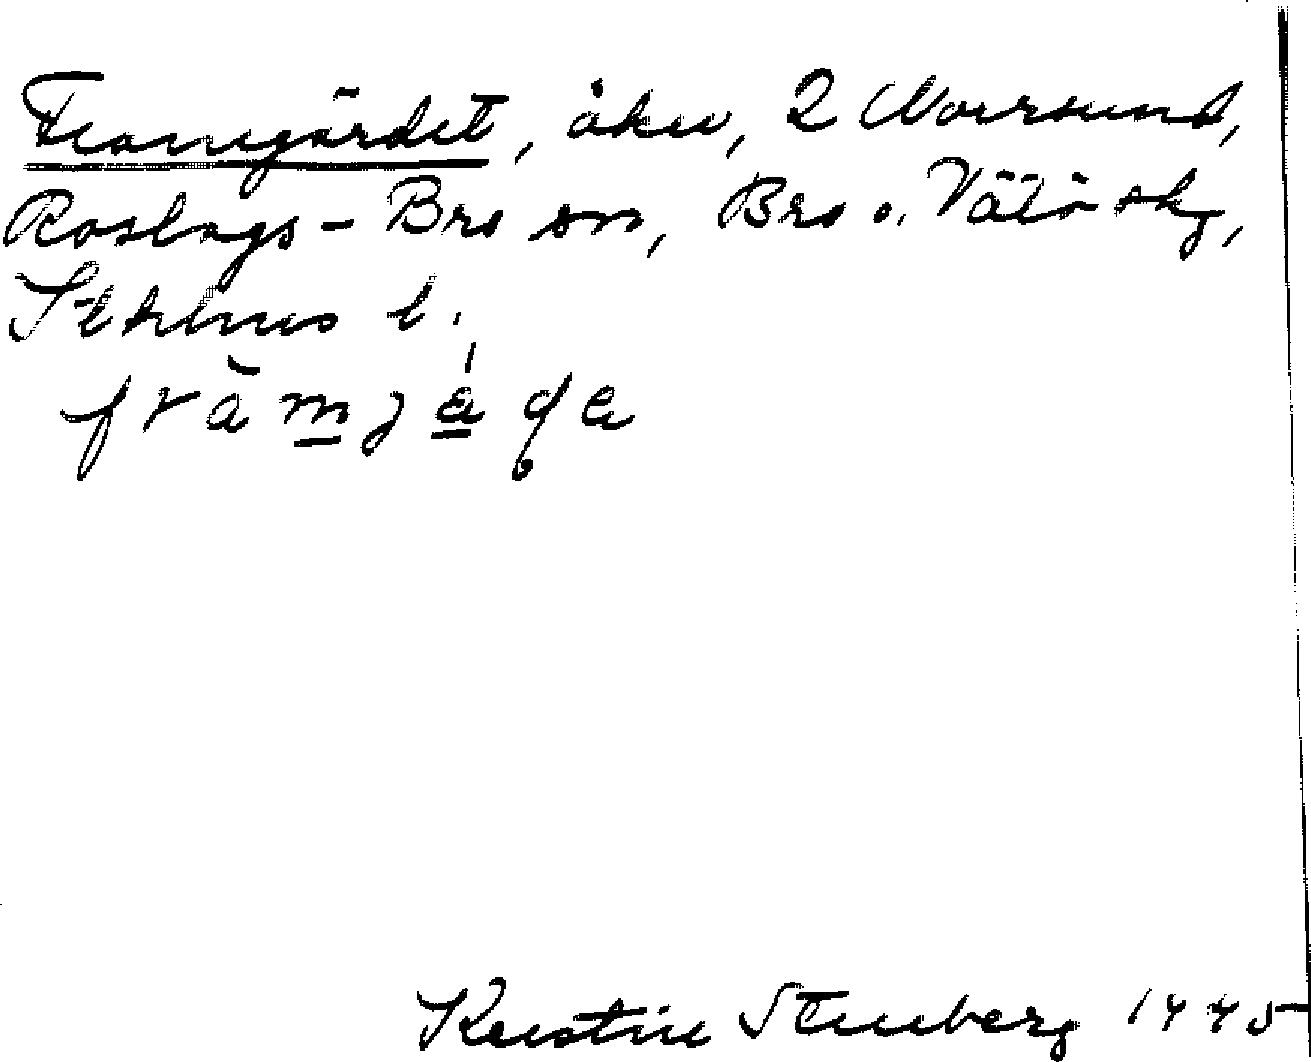 Framgärdet, åker, 2 Norrsund,
Roslags-Bro sn, Bro o. Vätö skg,
Sthlms l.
Kerstin Stenberg 1945